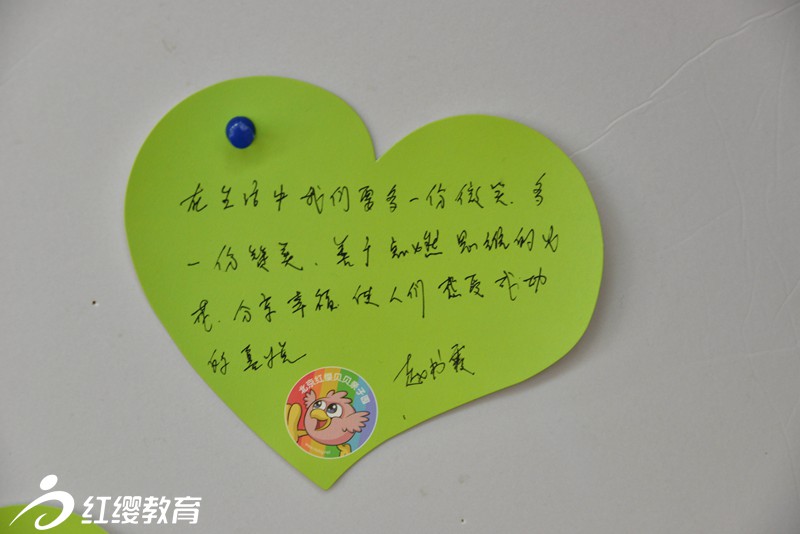 在生活中我们要多一份微笑、多
一份赞美、善于点燃思维的火
花、分享幸福使人们感受成功
的喜悦
赵书霞
北京红缨贝贝亲子园
红缨教育